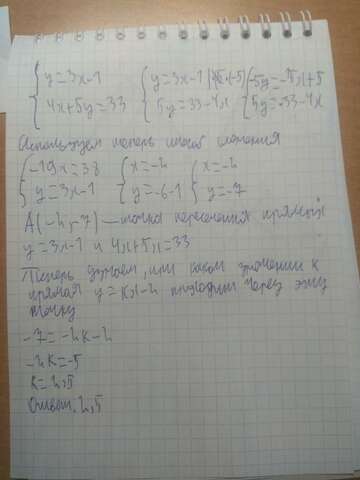 {y=3x-1 {y=3x-1 |·(-5) {-5y=-15x+5
{4x+5y=33 {5y=33-4x {5y=33-4x
Используем теперь способ сложения
{-19x=38 {x=-2 {x=-2
{y=3x-1 {y=-6-1 {y=-7
A(-2;-7) — точка пересечения прямых
y=3x-1 и 4x+5x=33
Теперь думаем, при каком значении k
прямая y=kx-2 проходит через эту
точку
-7=-2k-2
-2k=-5
k=2,5
Ответ. 2,5